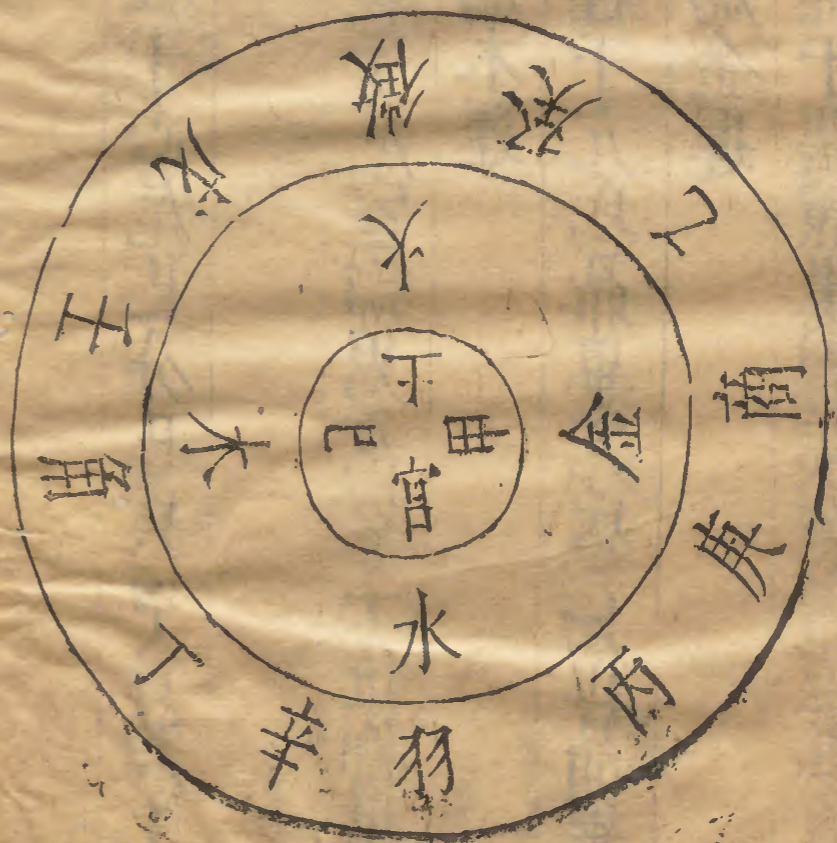 徵
癸
乙
商
庚
丙
羽
辛
丁
角
壬
戊
火
金
水
木
土
甲
宮
己